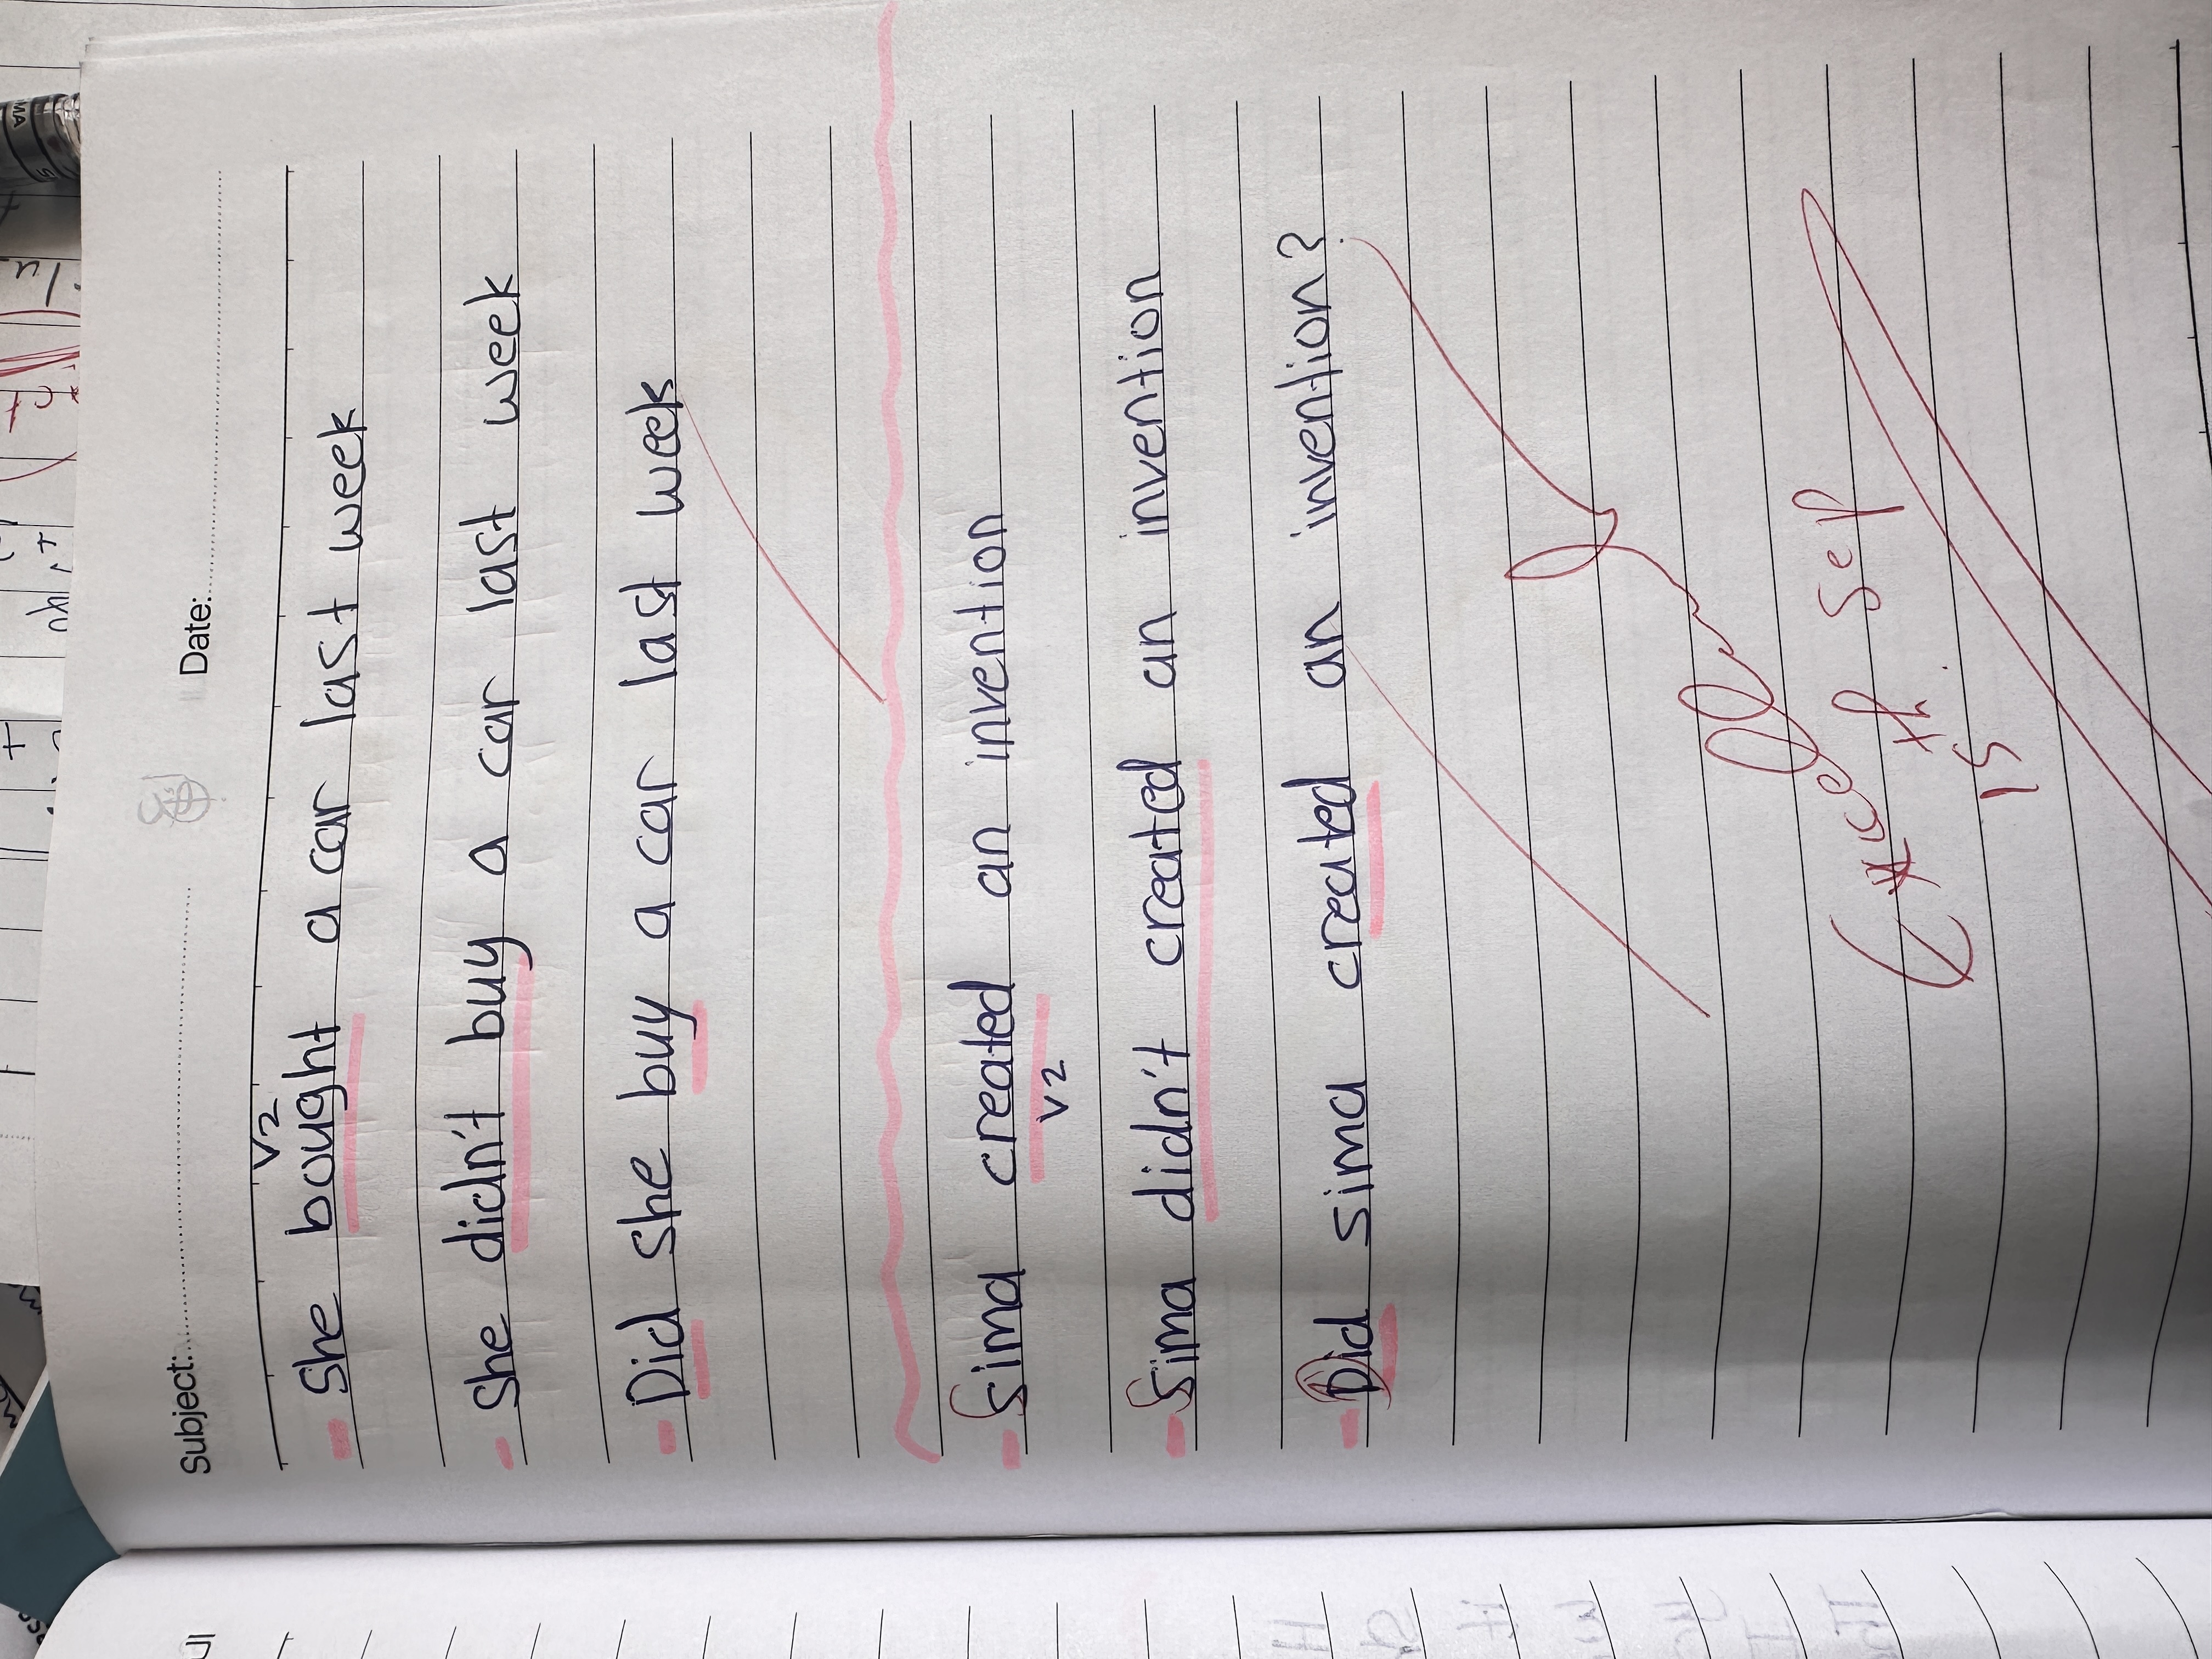 Subject: Date:
V2
She bought a car last week
She didn't buy a car last week
Did she buy a car last week
Sima created an invention
V2
Sima didn't created an invention
Did sima created an invention?
Sep
15